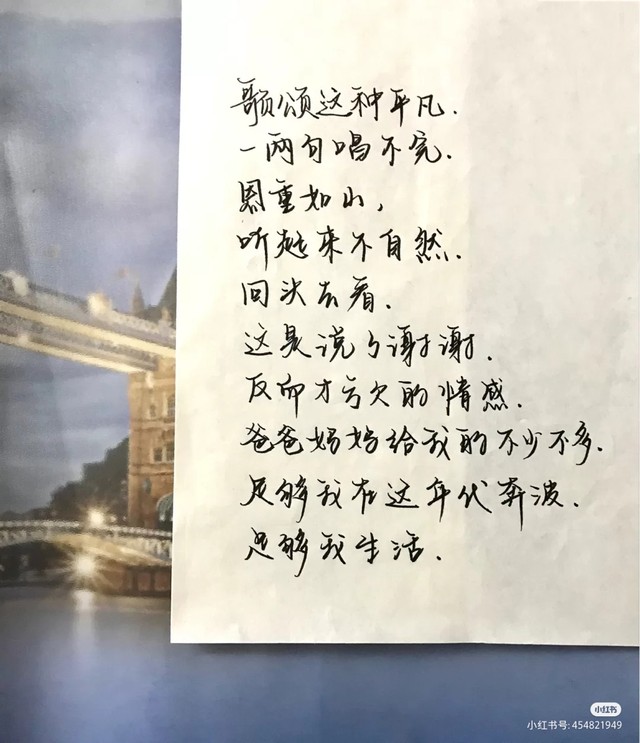 歌颂这种平凡.
一两句唱不完.
恩重如山,
听起来不自然.
回头去看.
这是说了谢谢.
反而才亏欠的情感.
爸爸妈妈给我的不少不多.
足够我在这年代奔波.
足够我生活.
小红书
小红书号: 454821949